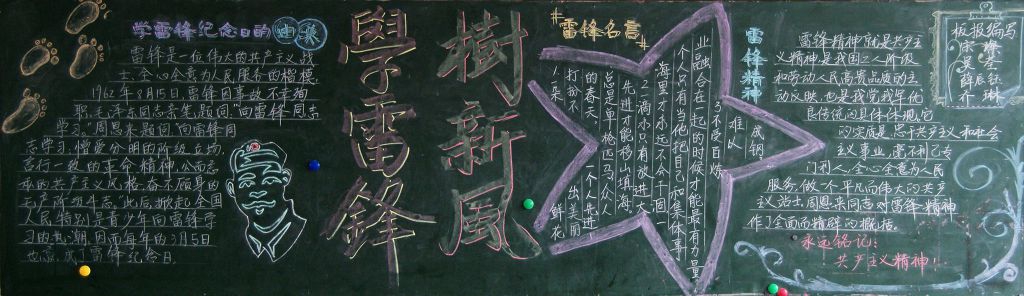 学雷锋纪念日的由来
雷锋是一位伟大的共产主义战
士,全心全意为人民服务的楷模
1962年8月15日,雷锋因事故不幸殉
职,毛泽东同志亲笔题词"向雷锋同志
学习"周恩来题词"向雷锋同
志学习,憎爱分明的阶级立场,
言行一致的革命精神,公而忘
私的共产主义风格,奋不顾身的
无产阶级斗志"此后掀起全国
人民特别是青少年向雷锋学
习的热潮,因而每年的3月5日
也就成了雷锋纪念日.
學雷鋒
樹新風
雷锋名言
1.一朵鲜花
打扮不出美丽
的春天,一个人先进
总是单枪匹马,众人
先进才能移山填海
2.一滴水只有放进大
海里才永远不会干涸
一个人只有当他把自己和集体事
业融合在一起的时候才能最有力量
3.不经百炼
难以
成钢
雷锋精神
雷锋精神就是共产主
义精神,是我国工人阶级
和劳动人民高贵品质的生
动反映,也是我党我军优
良传统的具体体现,它
的实质是忠于共产主义和社会
主义事业,毫不利己专
门利人,全心全意为人民
服务,做一个平凡而伟大的共产
主义战士,周恩来同志对雷锋精神
作了全面而精辟的概括。
永远铭记:
共产主义精神!
板报编写